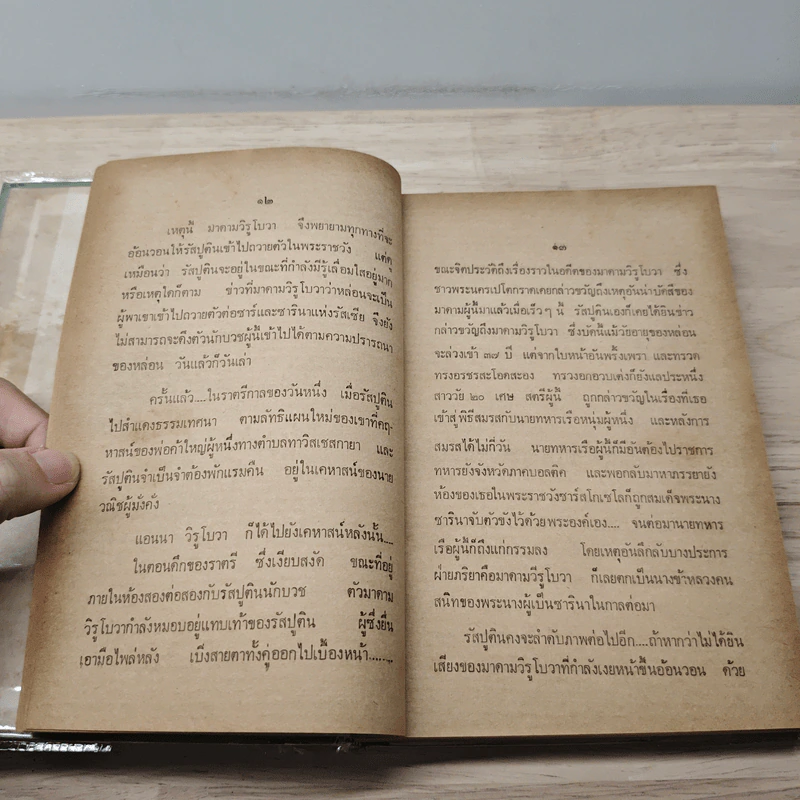 ๑๒
เหตุนี้ มาดามวิรูโบวา จึงพยายามทุกทางที่จะ
อ้อนวอนให้รัสปูตินเข้าไปถวายตัวในพระราชวัง แต่ดู
เหมือนว่า รัสปูตินจะอยู่ในขณะที่กำลังมีรู้เลื่อมใสอยู่มาก
หรือเหตุใดก็ตาม ข่าวที่มาดามวิรูโบวาว่าหล่อนจะเป็น
ผู้พาเขาเข้าไปถวายตัวต่อซาร์และซารินาแห่งรัสเซีย จึงยัง
ไม่สามารถจะดึงตัวนักบวชผู้นี้เข้าไปได้ตามความปรารถนา
ของหล่อน วันแล้วก็วันเล่า
ครั้นแล้ว....ในราตรีกาลของวันหนึ่ง เมื่อรัสปูติน
ไปสำแดงธรรมเทศนา ตามลัทธิแผนใหม่ของเขาที่คฤ-
หาสน์ของพ่อค้าใหญ่ผู้หนึ่งทางตำบลทาวิสเชสกายา และ
รัสปูตินจำเป็นจำต้องพักแรมคืน อยู่ในเคหาสน์ของนาย
วณิชผู้มั่งคั่ง
แอนนา วิรูโบวา ก็ได้ไปยังเคหาสน์หลังนั้น....
ในตอนดึกของราตรี ซึ่งเงียบสงัด ขณะที่อยู่
ภายในห้องสองต่อสองกับรัสปูตินนักบวช ตัวมาดาม
วิรูโบวากำลังหมอบอยู่แทบเท้าของรัสปูติน ผู้ซึ่งยืน
เอามือไพล่หลัง เบิ่งสายตาทั้งคู่ออกไปเบื้องหน้า........
๑๓
ขณะจิตประวัติถึงเรื่องราวในอดีตของมาดามวิรูโบวา ซึ่ง
ชาวพระนครเปโตกราดเคยกล่าวขวัญถึงเหตุอันน่าบัดสีของ
มาดามผู้นี้มาแล้วเมื่อเร็วๆ นี้ รัสปูตินเองก็เคยได้ยินข่าว
กล่าวขวัญถึงมาดามวิรูโบวา ซึ่งบัดนี้แม้วัยอายุของหล่อน
จะล่วงเข้า ๓๗ ปี แต่จากใบหน้าอันพริ้งเพรา และทรวด
ทรงอรชรสะโอดสะอง ทรวงอกอวบเต่งก็ยังแลประหนึ่ง
สาววัย ๒๐ เศษ สตรีผู้นี้ ถูกกล่าวขวัญในเรื่องที่เธอ
เข้าสู่พิธีสมรสกับนายทหารเรือหนุ่มผู้หนึ่ง และหลังการ
สมรสได้ไม่กี่วัน นายทหารเรือผู้นี้ก็มีอันต้องไปราชการ
ทหารยังจังหวัดภาคบอลติค และพอกลับมาหาภรรยายัง
ห้องของเธอในพระราชวังซาร์สโกเซโลก็ถูกสมเด็จพระนาง
ซารินาจับตัวขังไว้ด้วยพระองค์เอง.... จนต่อมานายทหาร
เรือผู้นี้ก็ถึงแก่กรรมลง โดยเหตุอันลึกลับบางประการ
ฝ่ายภริยาคือมาดามวิรูโบวา ก็เลยตกเป็นนางข้าหลวงคน
สนิทของพระนางผู้เป็นซารินาในกาลต่อมา
รัสปูตินคงจะลำดับภาพต่อไปอีก....ถ้าหากว่าไม่ได้ยิน
เสียงของมาดามวิรูโบวาที่กำลังเงยหน้าขึ้นอ้อนวอน ด้วย